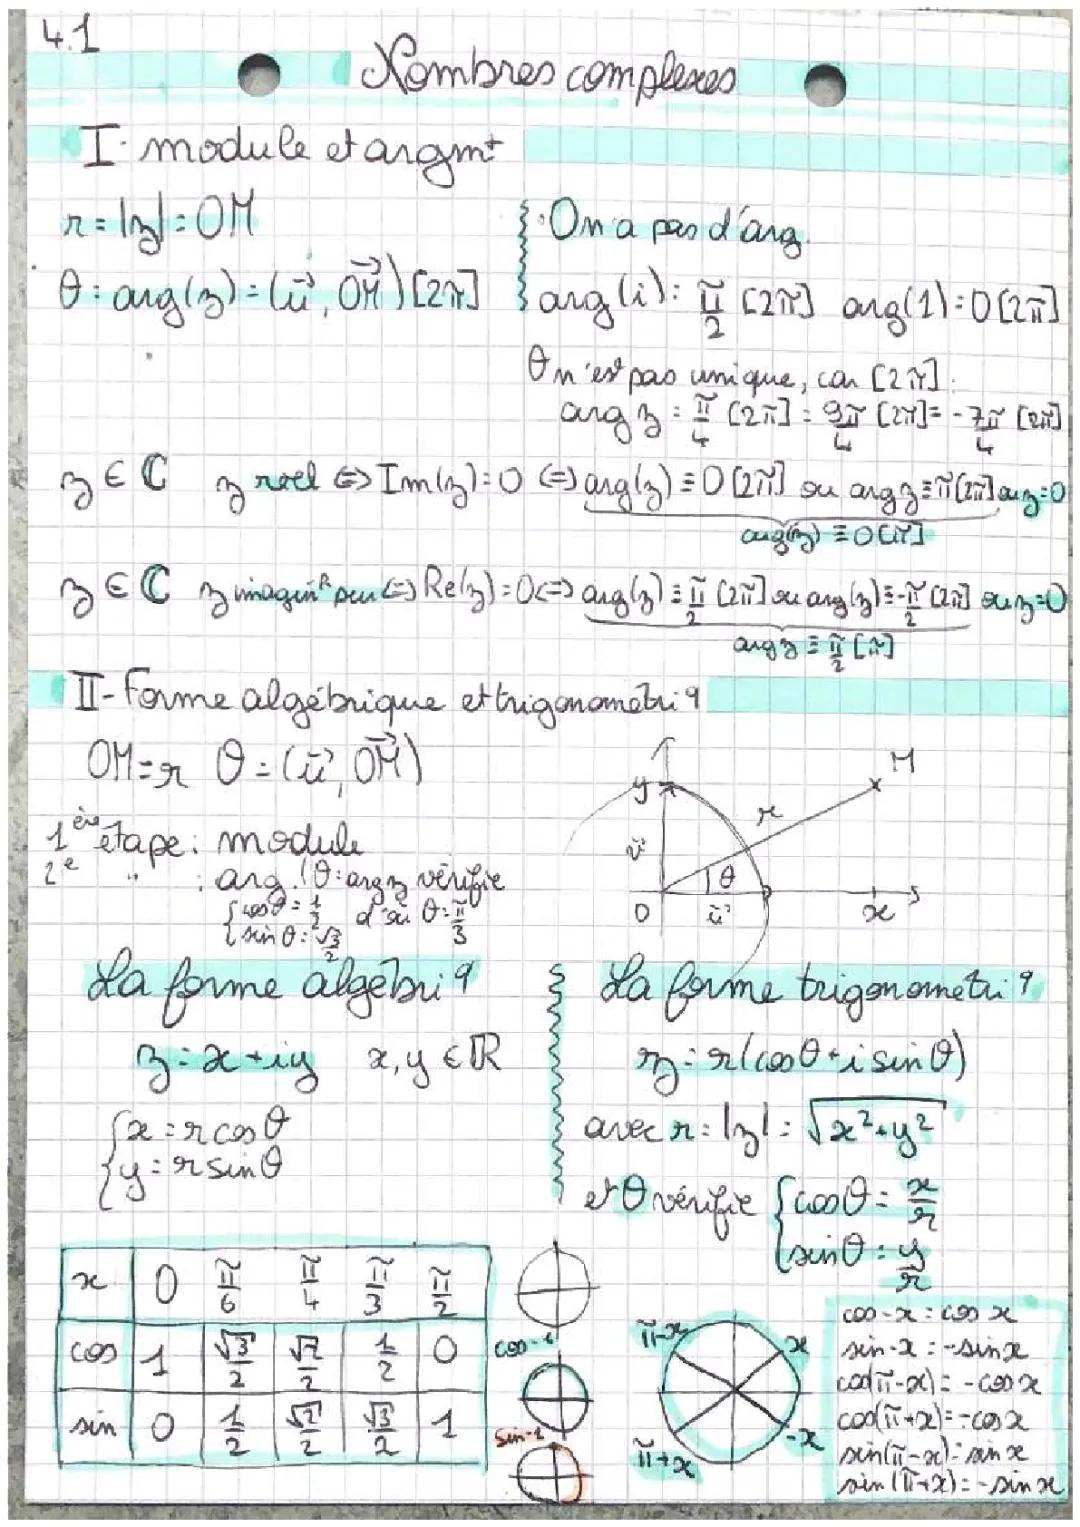 4.1
Nombres complexes
I. module et argmt
r = |z| = OM
θ = arg(z) = (u⃗, OM⃗) [2π]
· On a pas d'arg.
arg(i) = π/2 [2π] arg(1) = 0 [2π]
θ n'est pas unique, car [2π] :
arg z = π/4 [2π] = 9π/4 [2π] = -7π/4 [2π]
z ∈ ℂ z réel ⟺ Im(z) = 0 ⟺ arg(z) ≡ 0 [2π] ou arg z ≡ π [2π] ou z = 0
arg(z) ≡ 0 [π]
z ∈ ℂ z imaginR pur ⟺ Re(z) = 0 ⟺ arg(z) ≡ π/2 [2π] ou arg(z) ≡ -π/2 [2π] ou z = 0
arg z ≡ π/2 [π]
II - Forme algébrique et trigonométriq
OM = r θ = (u⃗, OM⃗)
1ère étape : module
2e " : arg. (θ = arg z vérifie
{cos θ = 1/2 d'où θ = π/3
{sin θ = √3/2
y v⃗ O u⃗ θ r M x
La forme algébriq
z = x + iy x, y ∈ ℝ
{x = r cos θ
{y = r sin θ
La forme trigonométriq
z = r(cos θ + i sin θ)
avec r = |z| = √x² + y²
et θ vérifie {cos θ = x/r
{sin θ = y/r
x 0 π/6 π/4 π/3 π/2
cos 1 √3/2 √2/2 1/2 0
sin 0 1/2 √2/2 √3/2 1
cos-1
sin-1
π-x x
π+x -x
cos -x = cos x
sin -x = -sin x
cos(π-x) = -cos x
cos(π+x) = -cos x
sin(π-x) = sin x
sin(π+x) = -sin x